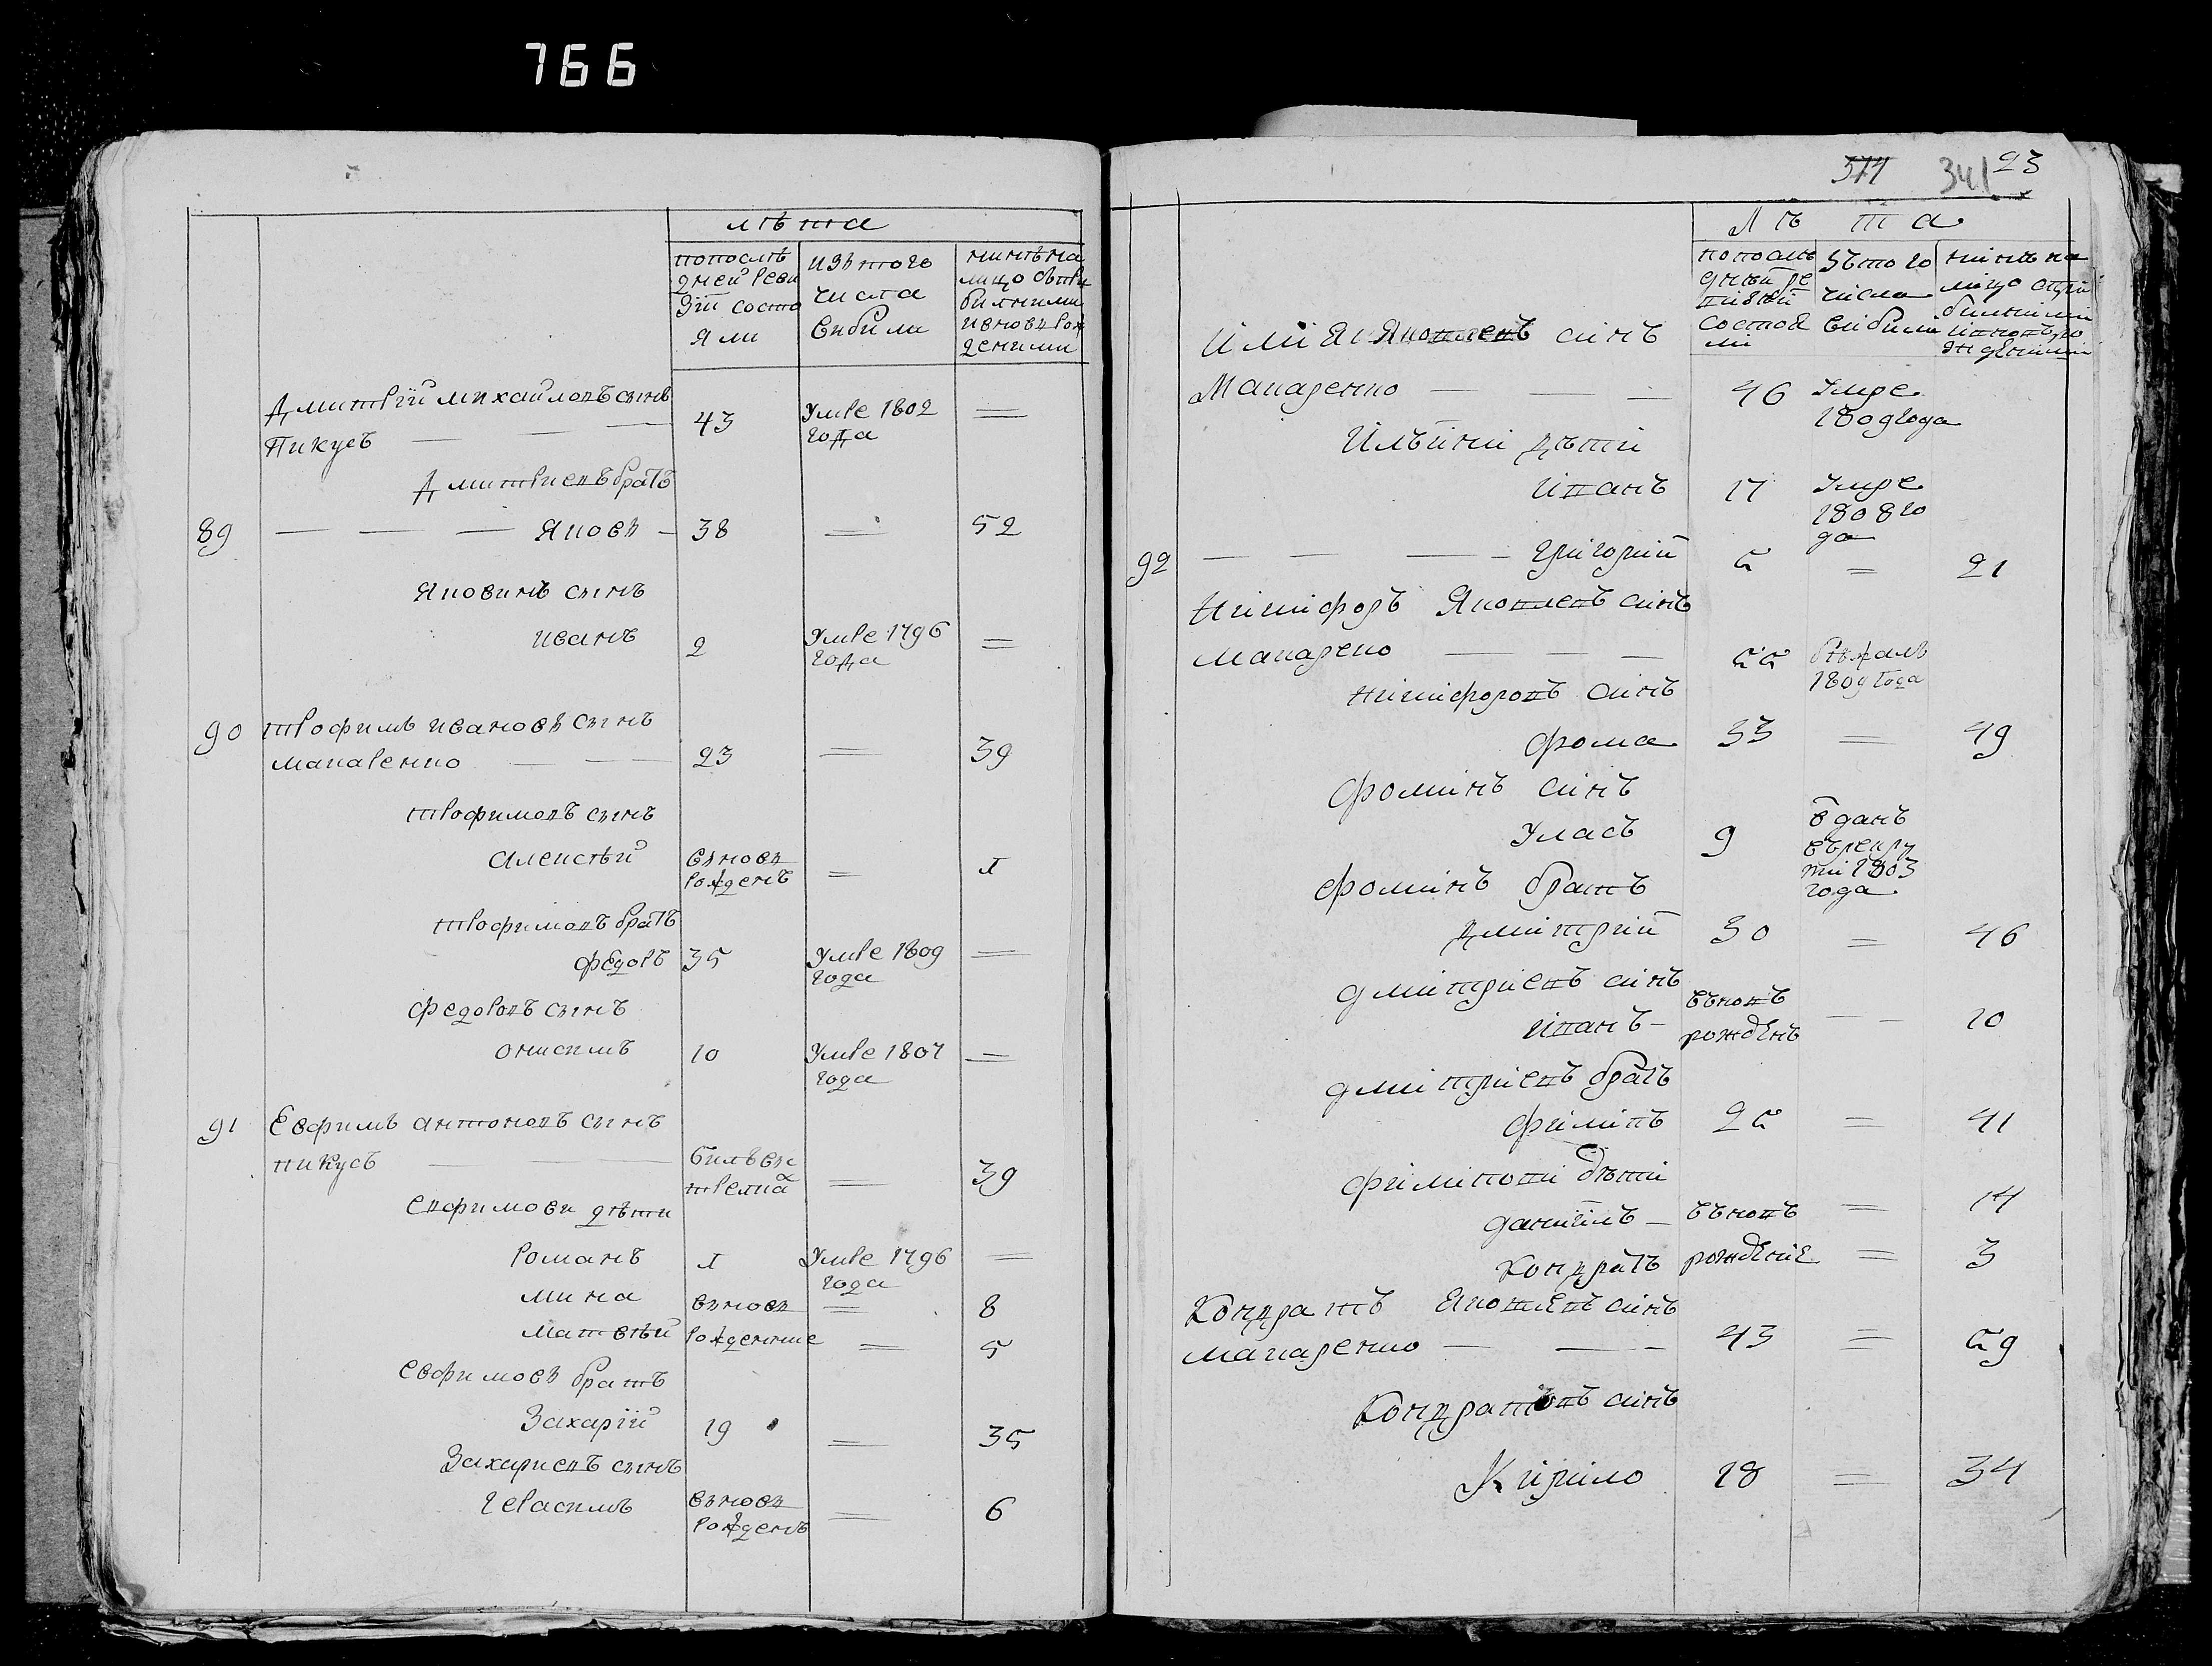 766
лѣта
по последней ревизіи состояли
изъ того числа выбыли
нынѣ на лицо съ прибылными и вновь рожденными
Дмитрій Михайловъ сынъ
Пикусъ — — — 43 Умре 1802 года =
Дмитріевъ братъ
89 — — — Яковъ — 38 = 52
Яковинъ сынъ
Иванъ 2 Умре 1796 года =
90 Трофимъ Ивановъ сынъ
Макаренко — — — 23 = 39
Трофимовъ сынъ
Алексѣй вновь рожденъ = 1
Трофимовъ братъ
Федоръ 35 Умре 1809 года =
Федоровъ сынъ
Онисимъ 10 Умре 1807 года =
91 Евфимъ Антоновъ сынъ
Пикусъ — — = 39
Евфимови дѣти
Романъ 1 Умре 1796 года =
Мина вновь = 8
Матвѣй рожденние = 5
Евфимовъ братъ
Захарій 19 = 35
Захариевъ сынъ
Герасимъ вновь рожденъ = 6
574 341 23
Лѣта
по последней ревизіи состояли
зъ того числа выбыли
нинѣ на лицо
Илія Яковлевъ синъ
Макаренко — — — 46 Умре 1809 года
Ильини дѣти
Иванъ 17 Умре 1808 года
92 — — — Григорий 5 = 21
Никифоръ Яковлевъ синъ
Макаренко — — — 55 бѣжалъ 1809 года
Никифоровъ синъ
Фома 33 = 49
Фоминъ синъ
Уласъ 9 ѿданъ въ рекрути 1803 года
Фоминъ братъ
Дмитрий 30 = 46
Дмитриевъ синъ
Иванъ — вновъ рожденъ — — 10
Дмитриевъ братъ
Филипъ 25 = 41
Филипови дѣти
Данііилъ — вновъ = 14
Кондратъ рождение = 3
Кондратъ Яковлевъ синъ
Макаренко — — — 43 = 59
Кондратовъ синъ
Кирило 18 = 34